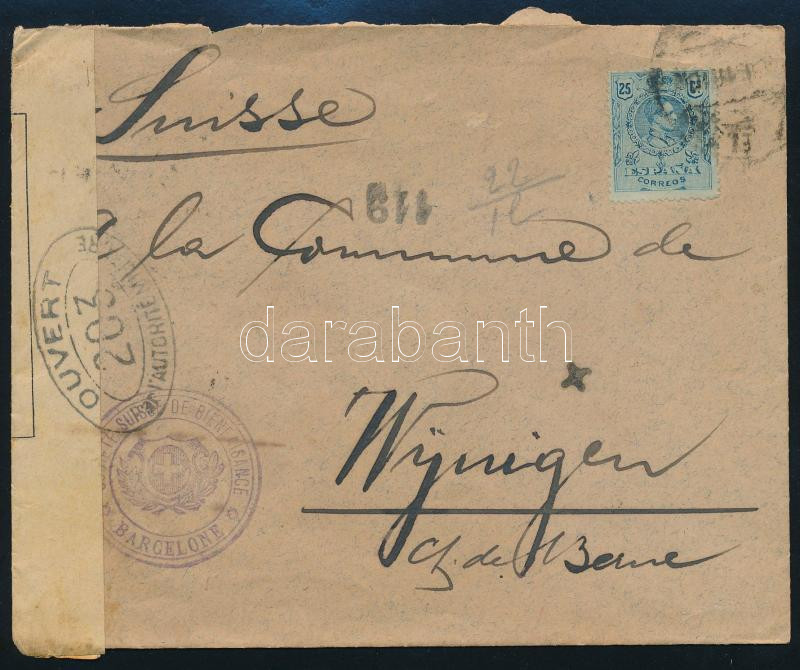 Suisse
25 Cs
CORREOS
119
22
12
la Commune de
OUVERT
L'AUTORITÉ MILITAIRE
203
darabanth
SUISSE DE BIENFAISANCE
BARCELONE
Wÿnigen
Ct. de Berne